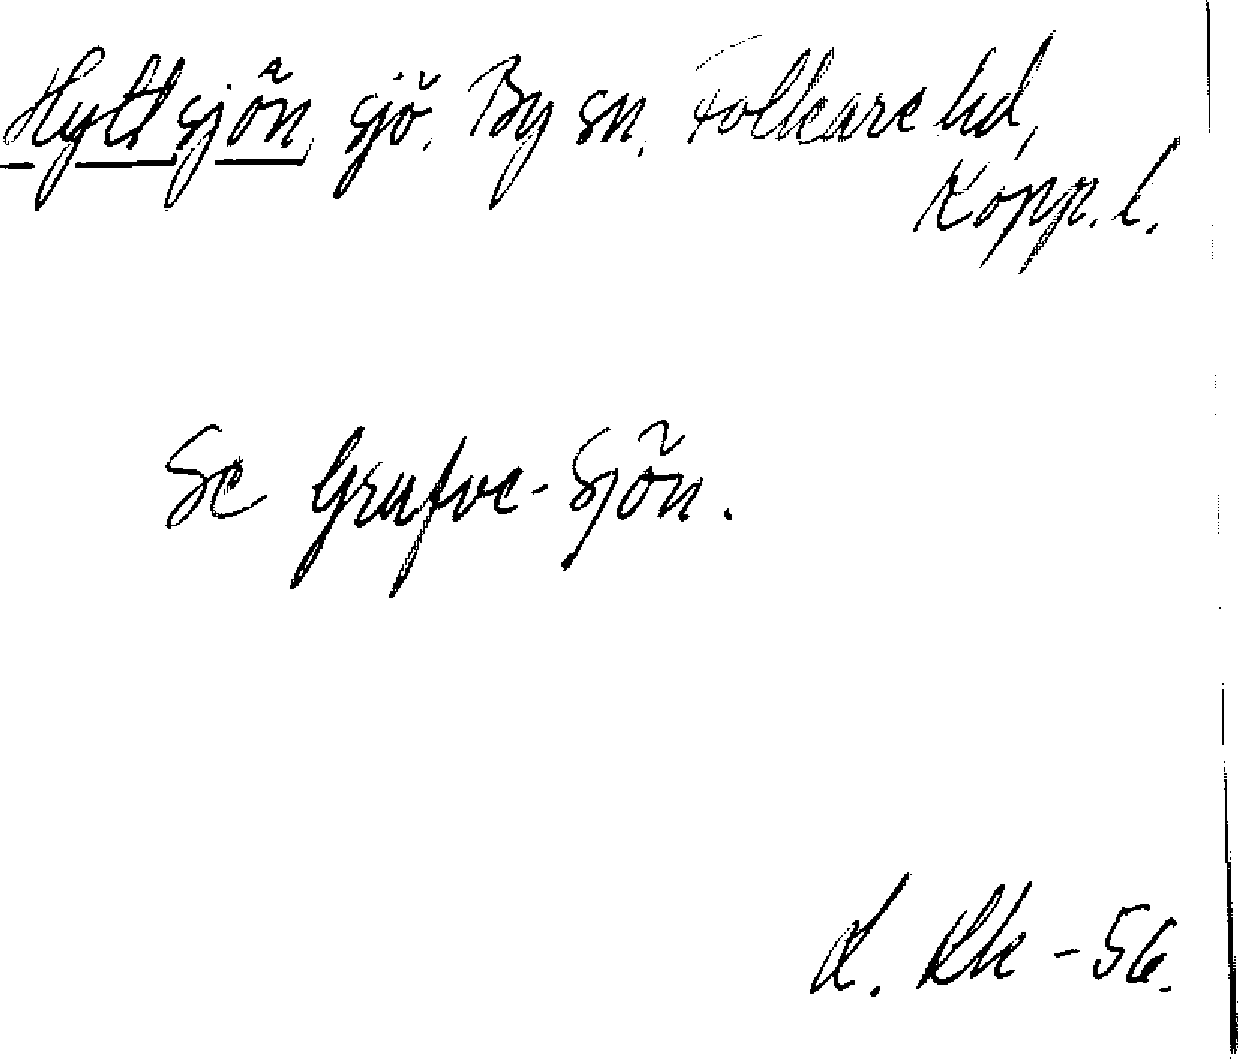 Hyttsjön, sjö. By sn. Folkare hd,
Kopp. l.
Se Grufve-Sjön.
L. Rk - 56.